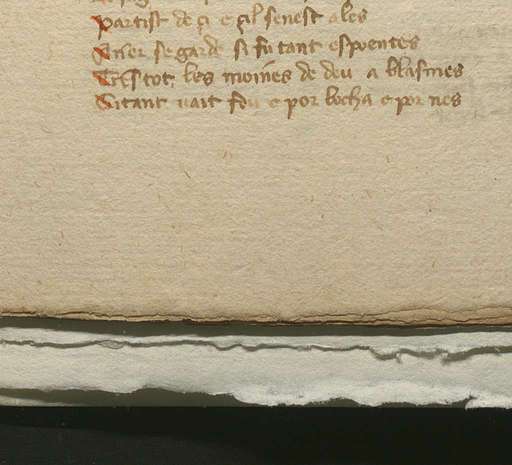 partist de çi e çil senest ales
se garde si fu tant espoentes
tot les moines de deu a blasmes
uait e por bocha e por nes